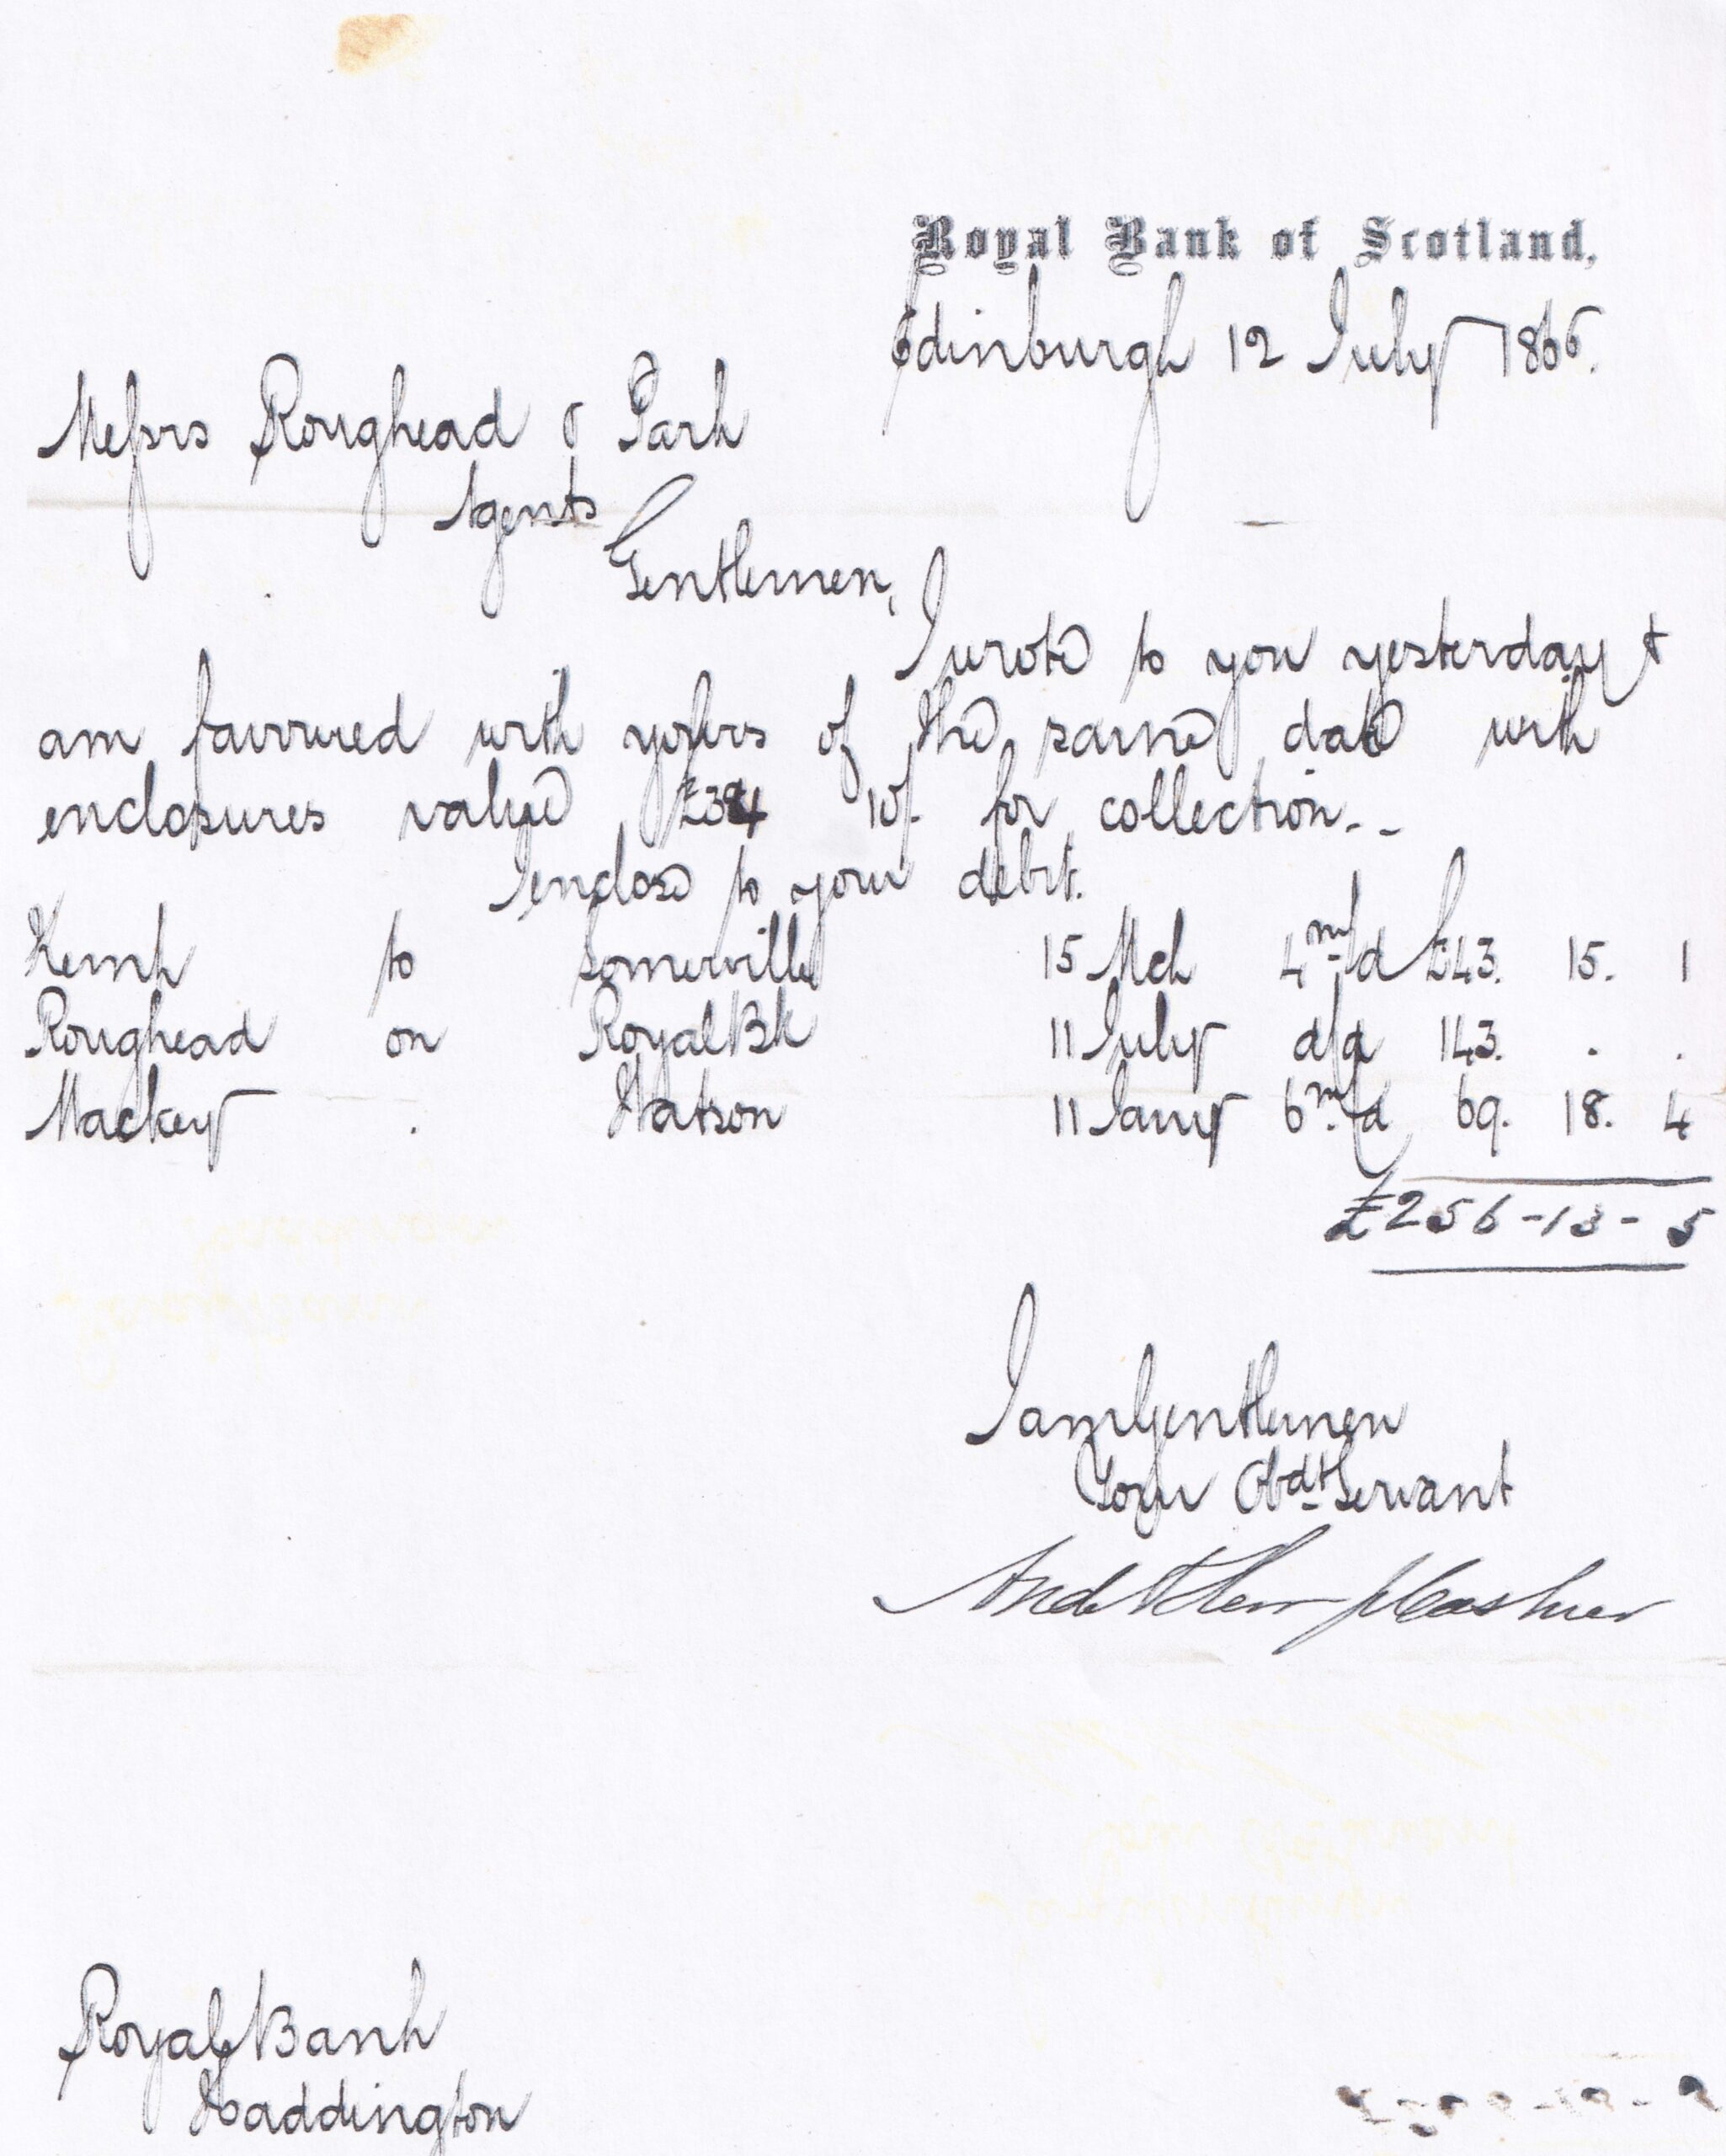 Royal Bank of Scotland,
Edinburgh 12 July 1866.
Messrs Roughead & Park
Agents
Gentlemen,
I wrote to you yesterday &
am favoured with yours of the same date with
enclosures value £384 10/- for collection. -
I enclose to your debit.
Kemp to Somerville 15 Mch 4 m/d £43. 15. 1
Roughead on Royal Bk 11 July d/d 143. . .
Mackey . Watson 11 Jany 6 m/d 69. 18. 4
£256-13-5
I am Gentlemen
Your Obdt Servant
Cashier
Royal Bank
Haddington